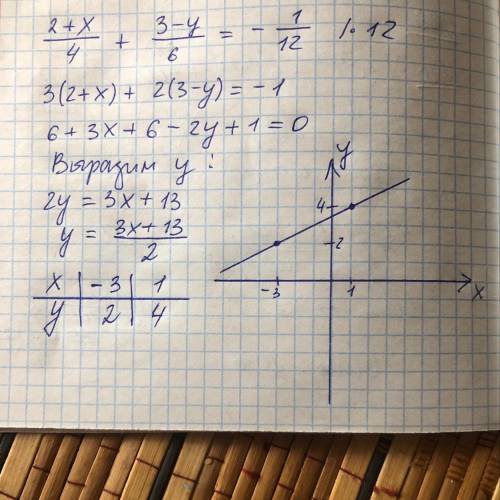 (2+x)/4 + (3-y)/6 = - 1/12 |·12
3(2+x) + 2(3-y) = -1
6 + 3x + 6 - 2y + 1 = 0
Выразим y:
2y = 3x + 13
y = (3x+13)/2
x | -3 | 1
y | 2 | 4
y
4
2
-3 1 x